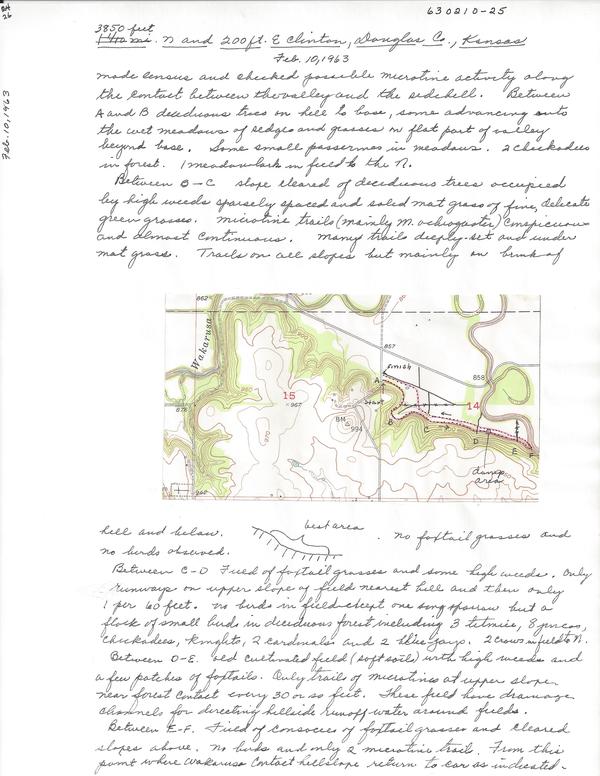 630210-25
Feb. 10, 1963
3850 feet
N and 200 ft. E Clinton, Douglas Co., Kansas
Feb. 10, 1963
made census and checked possible microtine activity along
the contact between the valley and the sidehill. Between
A and B deciduous trees on hill to base, some advancing onto
the wet meadows of sedges and grasses on flat part of valley
beyond base. Some small passerines in meadows. 2 chickadees
in forest. 1 meadowlark in field to the N.
Between B-C slope cleared of deciduous trees occupied
by high weeds sparsely spaced and solid mat grass of fine, delicate
green grasses. Microtine trails (mainly M. ochrogaster) conspicuous
and almost continuous. Many trails deeply-set and under
mat grass. Trails on all slopes but mainly on brink of
862
Wakarusa
857
858
finish
A
start
15
14
967
BM
994
878
B
C
D
E
F
dump
area
hill and below. best area. no foxtail grasses and
no birds observed.
Between C-D Field of foxtail grasses and some high weeds. Only
runways on upper slope of field nearest hill and then only
1 per 60 feet. No birds in field except one song sparrow but a
flock of small birds in deciduous forest, including 3 titmice, 8 juncos,
chickadees, kinglets, 2 cardinals and 2 blue jays. 2 crows in field to N.
Between D-E. old cultivated field (soft soils) with high weeds and
a few patches of foxtails. Only trails of microtines at upper slope
near forest contact every 30 or so feet. These field have drainage
channels for directing hillside runoff water around fields.
Between E-F. Field of consocies of foxtail grasses and cleared
slopes above. No birds and only 2 microtine trails. From this
point where Wakarusa contact hillslope return to car as indicated.